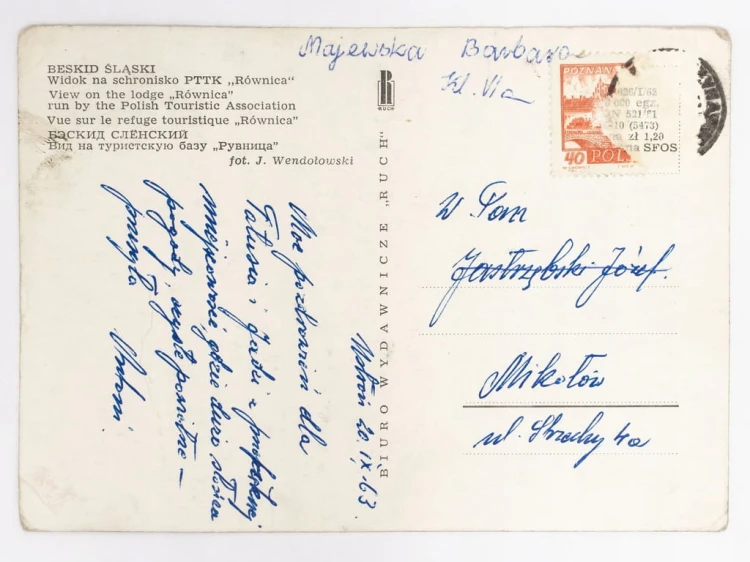 Majewska Barbara
Kl. VIa
BESKID ŚLĄSKI
Widok na schronisko PTTK „Równica"
View on the lodge „Równica"
run by the Polish Touristic Association
Vue sur le refuge touristique „Równica"
БЭСКИД СЛЁНСКИЙ
Вид на туристскую базу „Рувница"
fot. J. Wendołowski
RUCH
BIURO WYDAWNICZE „RUCH"
POZNAŃ
40 POL
626/I/63
0 000 egz.
N 521/61
-10 (5473)
a zł 1,20
na SFOS
Ustroń 20.IX.63.
Moc pozdrowień dla
Tatusia i
gdzie dużo słońca
pogody, czyste powietrze –
Antoni
W. Pan
Jastrzębski Józef.
Mikołów
ul. 4a